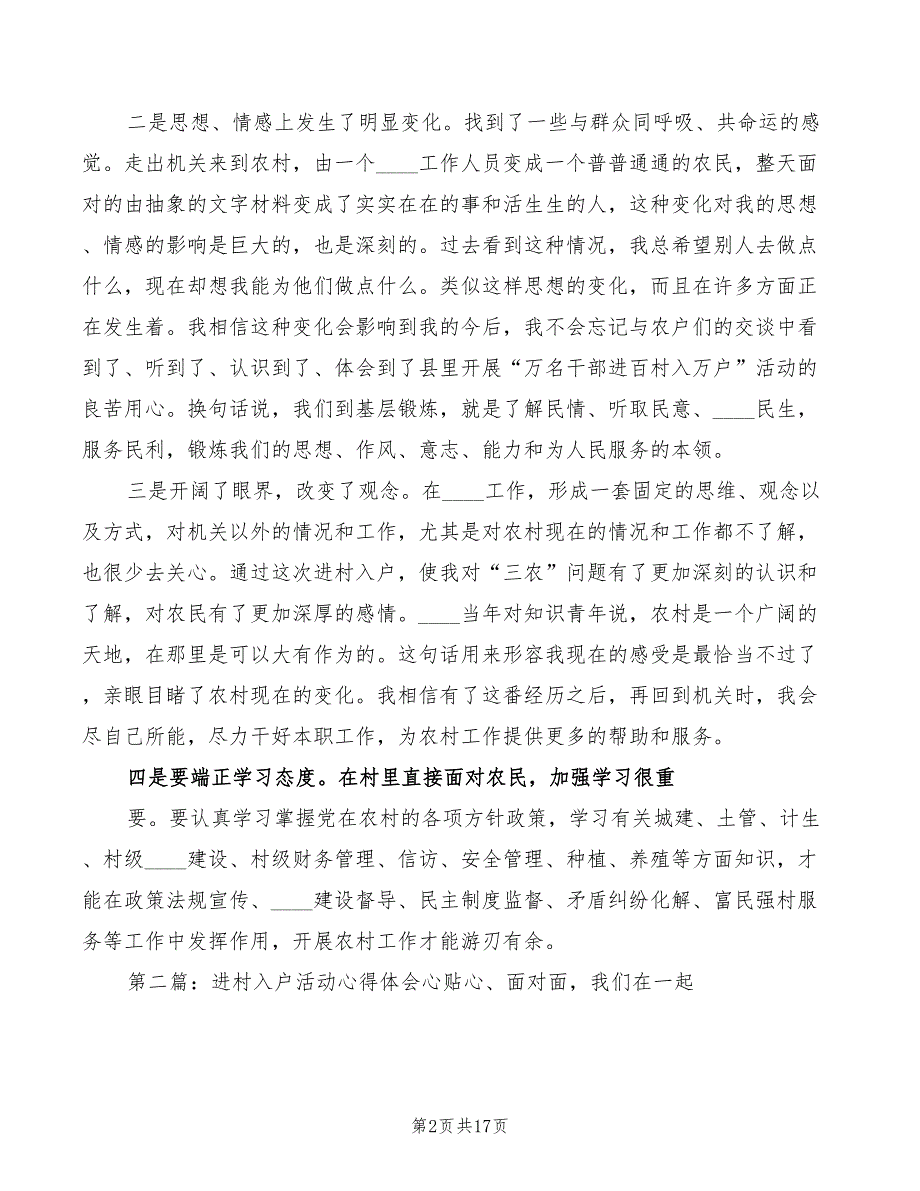 二是思想、情感上发生了明显变化。找到了一些与群众同呼吸、共命运的感
觉。走出机关来到农村，由一个____工作人员变成一个普普通通的农民，整天面
对的由抽象的文字材料变成了实实在在的事和活生生的人，这种变化对我的思想
、情感的影响是巨大的，也是深刻的。过去看到这种情况，我总希望别人去做点
什么，现在却想我能为他们做点什么。类似这样思想的变化，而且在许多方面正
在发生着。我相信这种变化会影响到我的今后，我不会忘记与农户们的交谈中看
到了、听到了、认识到了、体会到了县里开展“万名干部进百村入万户”活动的
良苦用心。换句话说，我们到基层锻炼，就是了解民情、听取民意、____民生，
服务民利，锻炼我们的思想、作风、意志、能力和为人民服务的本领。
三是开阔了眼界，改变了观念。在____工作，形成一套固定的思维、观念以
及方式，对机关以外的情况和工作，尤其是对农村现在的情况和工作都不了解，
也很少去关心。通过这次进村入户，使我对“三农”问题有了更加深刻的认识和
了解，对农民有了更加深厚的感情。____当年对知识青年说，农村是一个广阔的
天地，在那里是可以大有作为的。这句话用来形容我现在的感受是最恰当不过了
，亲眼目睹了农村现在的变化。我相信有了这番经历之后，再回到机关时，我会
尽自己所能，尽力干好本职工作，为农村工作提供更多的帮助和服务。
四是要端正学习态度。在村里直接面对农民，加强学习很重
要。要认真学习掌握党在农村的各项方针政策，学习有关城建、土管、计生
、村级____建设、村级财务管理、信访、安全管理、种植、养殖等方面知识，才
能在政策法规宣传、____建设督导、民主制度监督、矛盾纠纷化解、富民强村服
务等工作中发挥作用，开展农村工作才能游刃有余。
第二篇：进村入户活动心得体会心贴心、面对面，我们在一起
第2页共17页